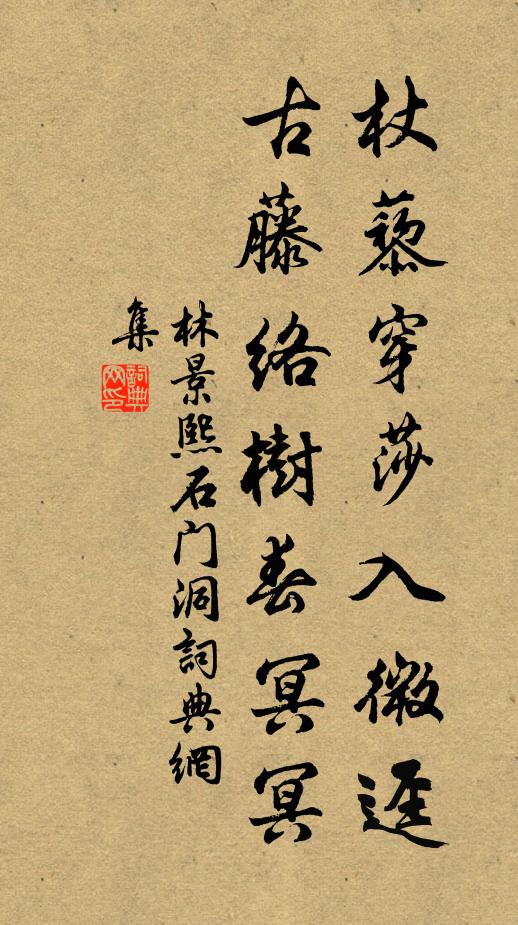 杖藜穿莎入微逕
古藤络樹春冥冥
林景熙石门洞詞典網
集
詞典網印